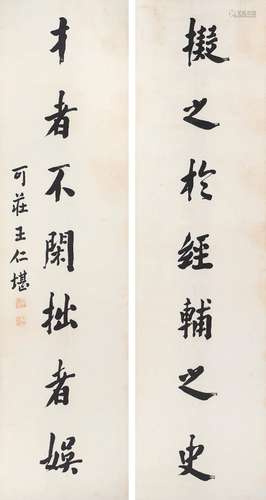 擬之於經輔之史
才者不閑拙者娛
可莊王仁堪